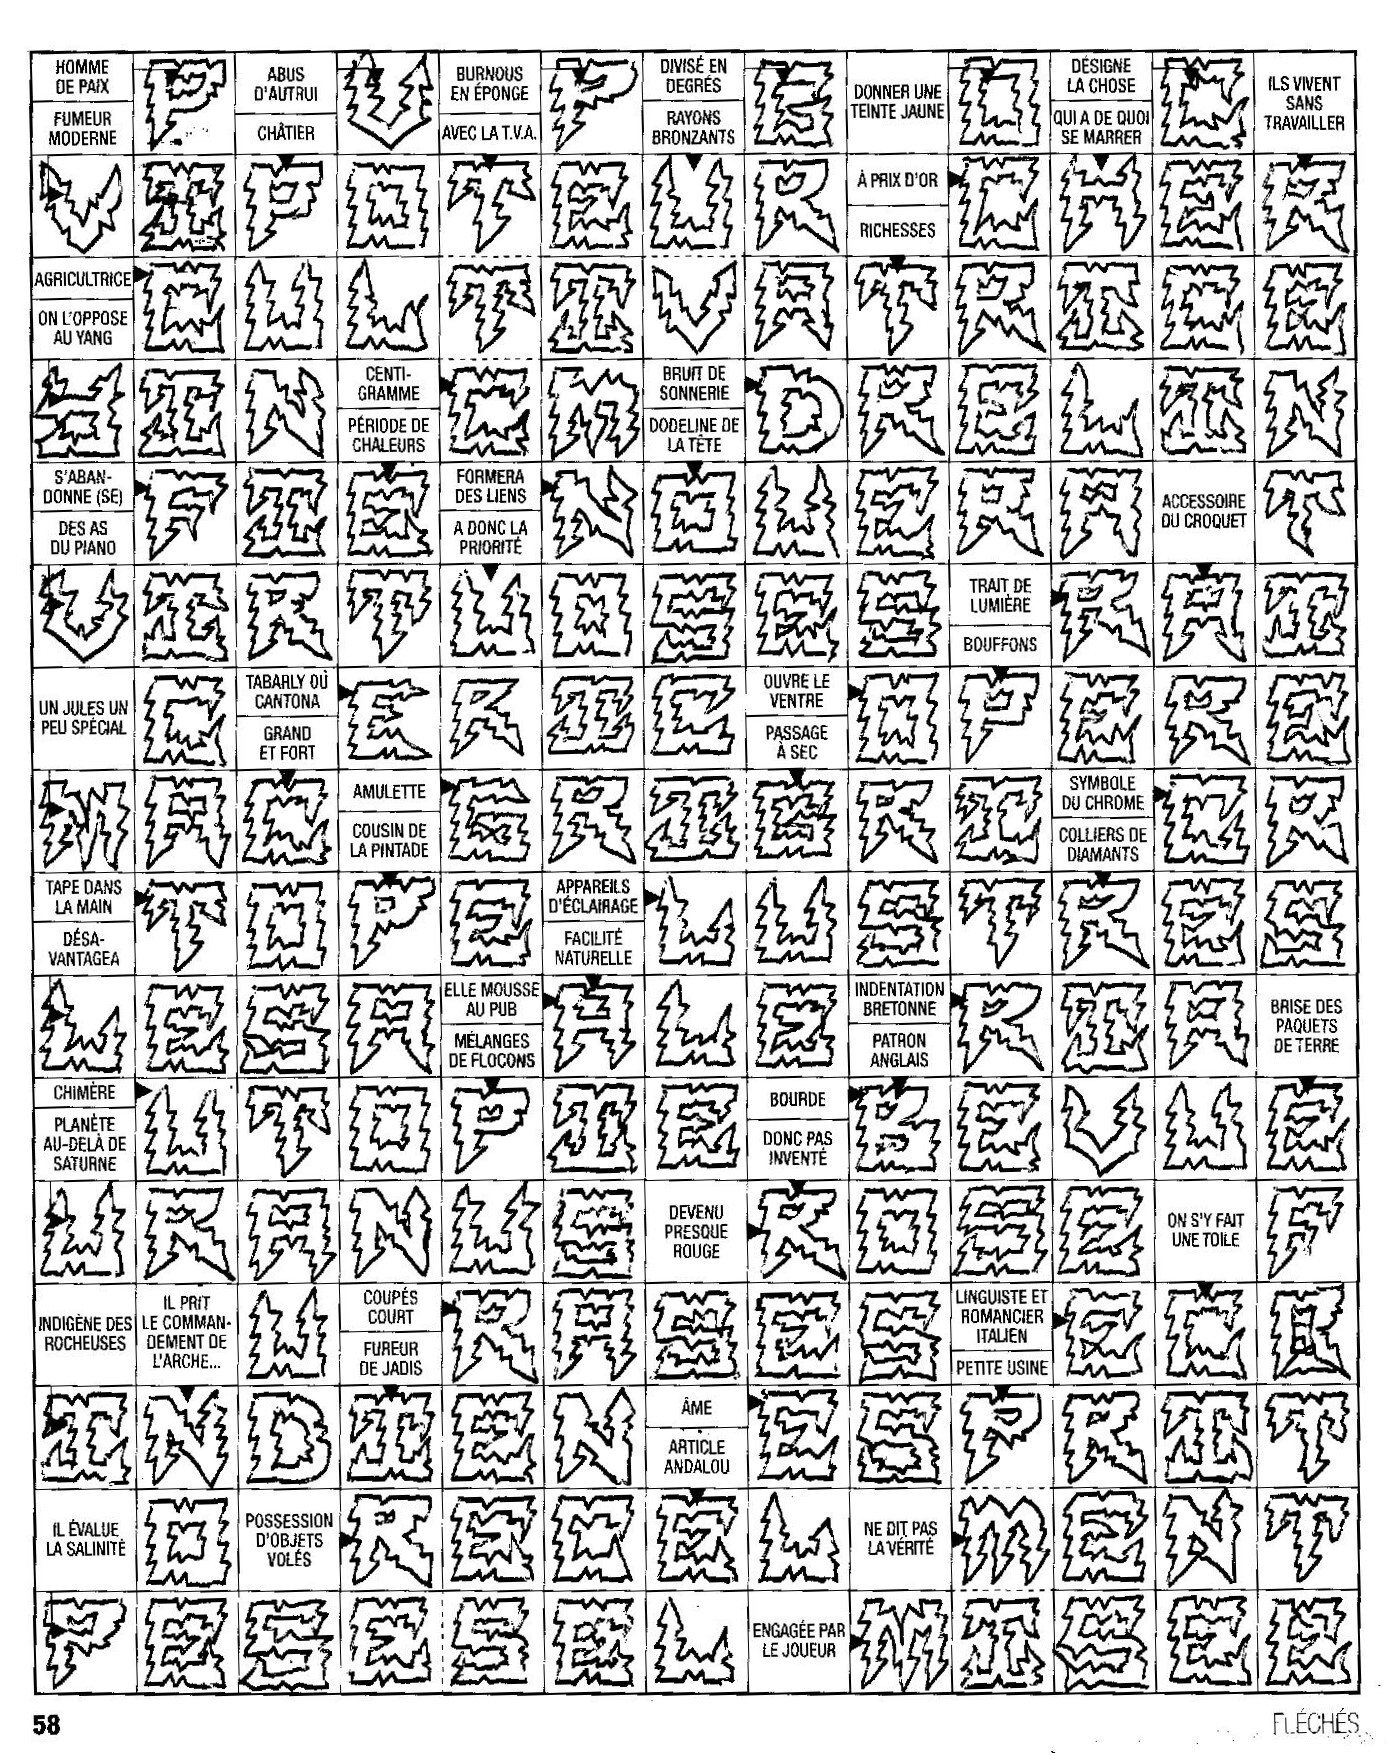 HOMME
DE PAIX
FUMEUR
MODERNE
P
ABUS
D'AUTRUI
CHÂTIER
V
BURNOUS
EN ÉPONGE
AVEC LA T.V.A.
P
DIVISÉ EN
DEGRÉS
RAYONS
BRONZANTS
G
DONNER UNE
TEINTE JAUNE
O
DÉSIGNE
LA CHOSE
QUI A DE QUOI
SE MARRER
C
ILS VIVENT
SANS
TRAVAILLER
V A P O T E U R
À PRIX D'OR
RICHESSES
C H E R
AGRICULTRICE
ON L'OPPOSE
AU YANG
C U L T I V A T R I C E
Y I N
CENTI-
GRAMME
PÉRIODE DE
CHALEURS
C G
BRUIT DE
SONNERIE
DODELINE DE
LA TÊTE
D R E L I N
S'ABAN-
DONNE (SE)
DES AS
DU PIANO
F I E
FORMERA
DES LIENS
A DONC LA
PRIORITÉ
N O U E R A
ACCESSOIRE
DU CROQUET
T
V I R T U O S E S
TRAIT DE
LUMIÈRE
BOUFFONS
R A I
UN JULES UN
PEU SPÉCIAL
C
TABARLY OÙ
CANTONA
GRAND
ET FORT
E R I C
OUVRE LE
VENTRE
PASSAGE
À SEC
O P E R E
M A C
AMULETTE
COUSIN DE
LA PINTADE
G R I G R I
SYMBOLE
DU CHROME
COLLIERS DE
DIAMANTS
C R
TAPE DANS
LA MAIN
DÉSA-
VANTAGEA
T O P E
APPAREILS
D'ÉCLAIRAGE
FACILITÉ
NATURELLE
L U S T R E S
L E S A
ELLE MOUSSE
AU PUB
MÉLANGES
DE FLOCONS
A L E
INDENTATION
BRETONNE
PATRON
ANGLAIS
R I A
BRISE DES
PAQUETS
DE TERRE
CHIMÈRE
PLANÈTE
AU-DELÀ DE
SATURNE
U T O P I E
BOURDE
DONC PAS
INVENTÉ
B E V U E
U R A N U S
DEVENU
PRESQUE
ROUGE
R O S E
ON S'Y FAIT
UNE TOILE
F
INDIGÈNE DES
ROCHEUSES
IL PRIT
LE COMMAN-
DEMENT DE
L'ARCHE...
U
COUPÉS
COURT
FUREUR
DE JADIS
R A S E S
LINGUISTE ET
ROMANCIER
ITALIEN
PETITE USINE
E C
I N D I E N
ÂME
ARTICLE
ANDALOU
E S P R I T
IL ÉVALUE
LA SALINITÉ
O
POSSESSION
D'OBJETS
VOLÉS
R E C E L
NE DIT PAS
LA VÉRITÉ
M E N T
P E S E S E L
ENGAGÉE PAR
LE JOUEUR
M I S E E
58
FLÉCHÉS